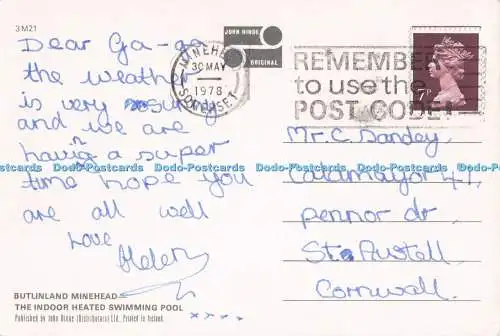 3M21
Dear Ga-ga
the weather
is very sunny
and we are
having a super
time hope you
are all well
love
Helen
x x x x
BUTLINLAND MINEHEAD
THE INDOOR HEATED SWIMMING POOL
Published by John Hinde (Distributors) Ltd., Printed in Ireland.
JOHN HINDE
ORIGINAL
MINEHEAD
30 MAY
1978
SOMERSET
REMEMBER
to use the
POST CODE!
7P
Mr. C. Dandey,
41,
pennor dr,
St. Austell
Cornwall.
Dodo-Postcards Dodo-Postcards Dodo-Postcards Dodo-Postcards